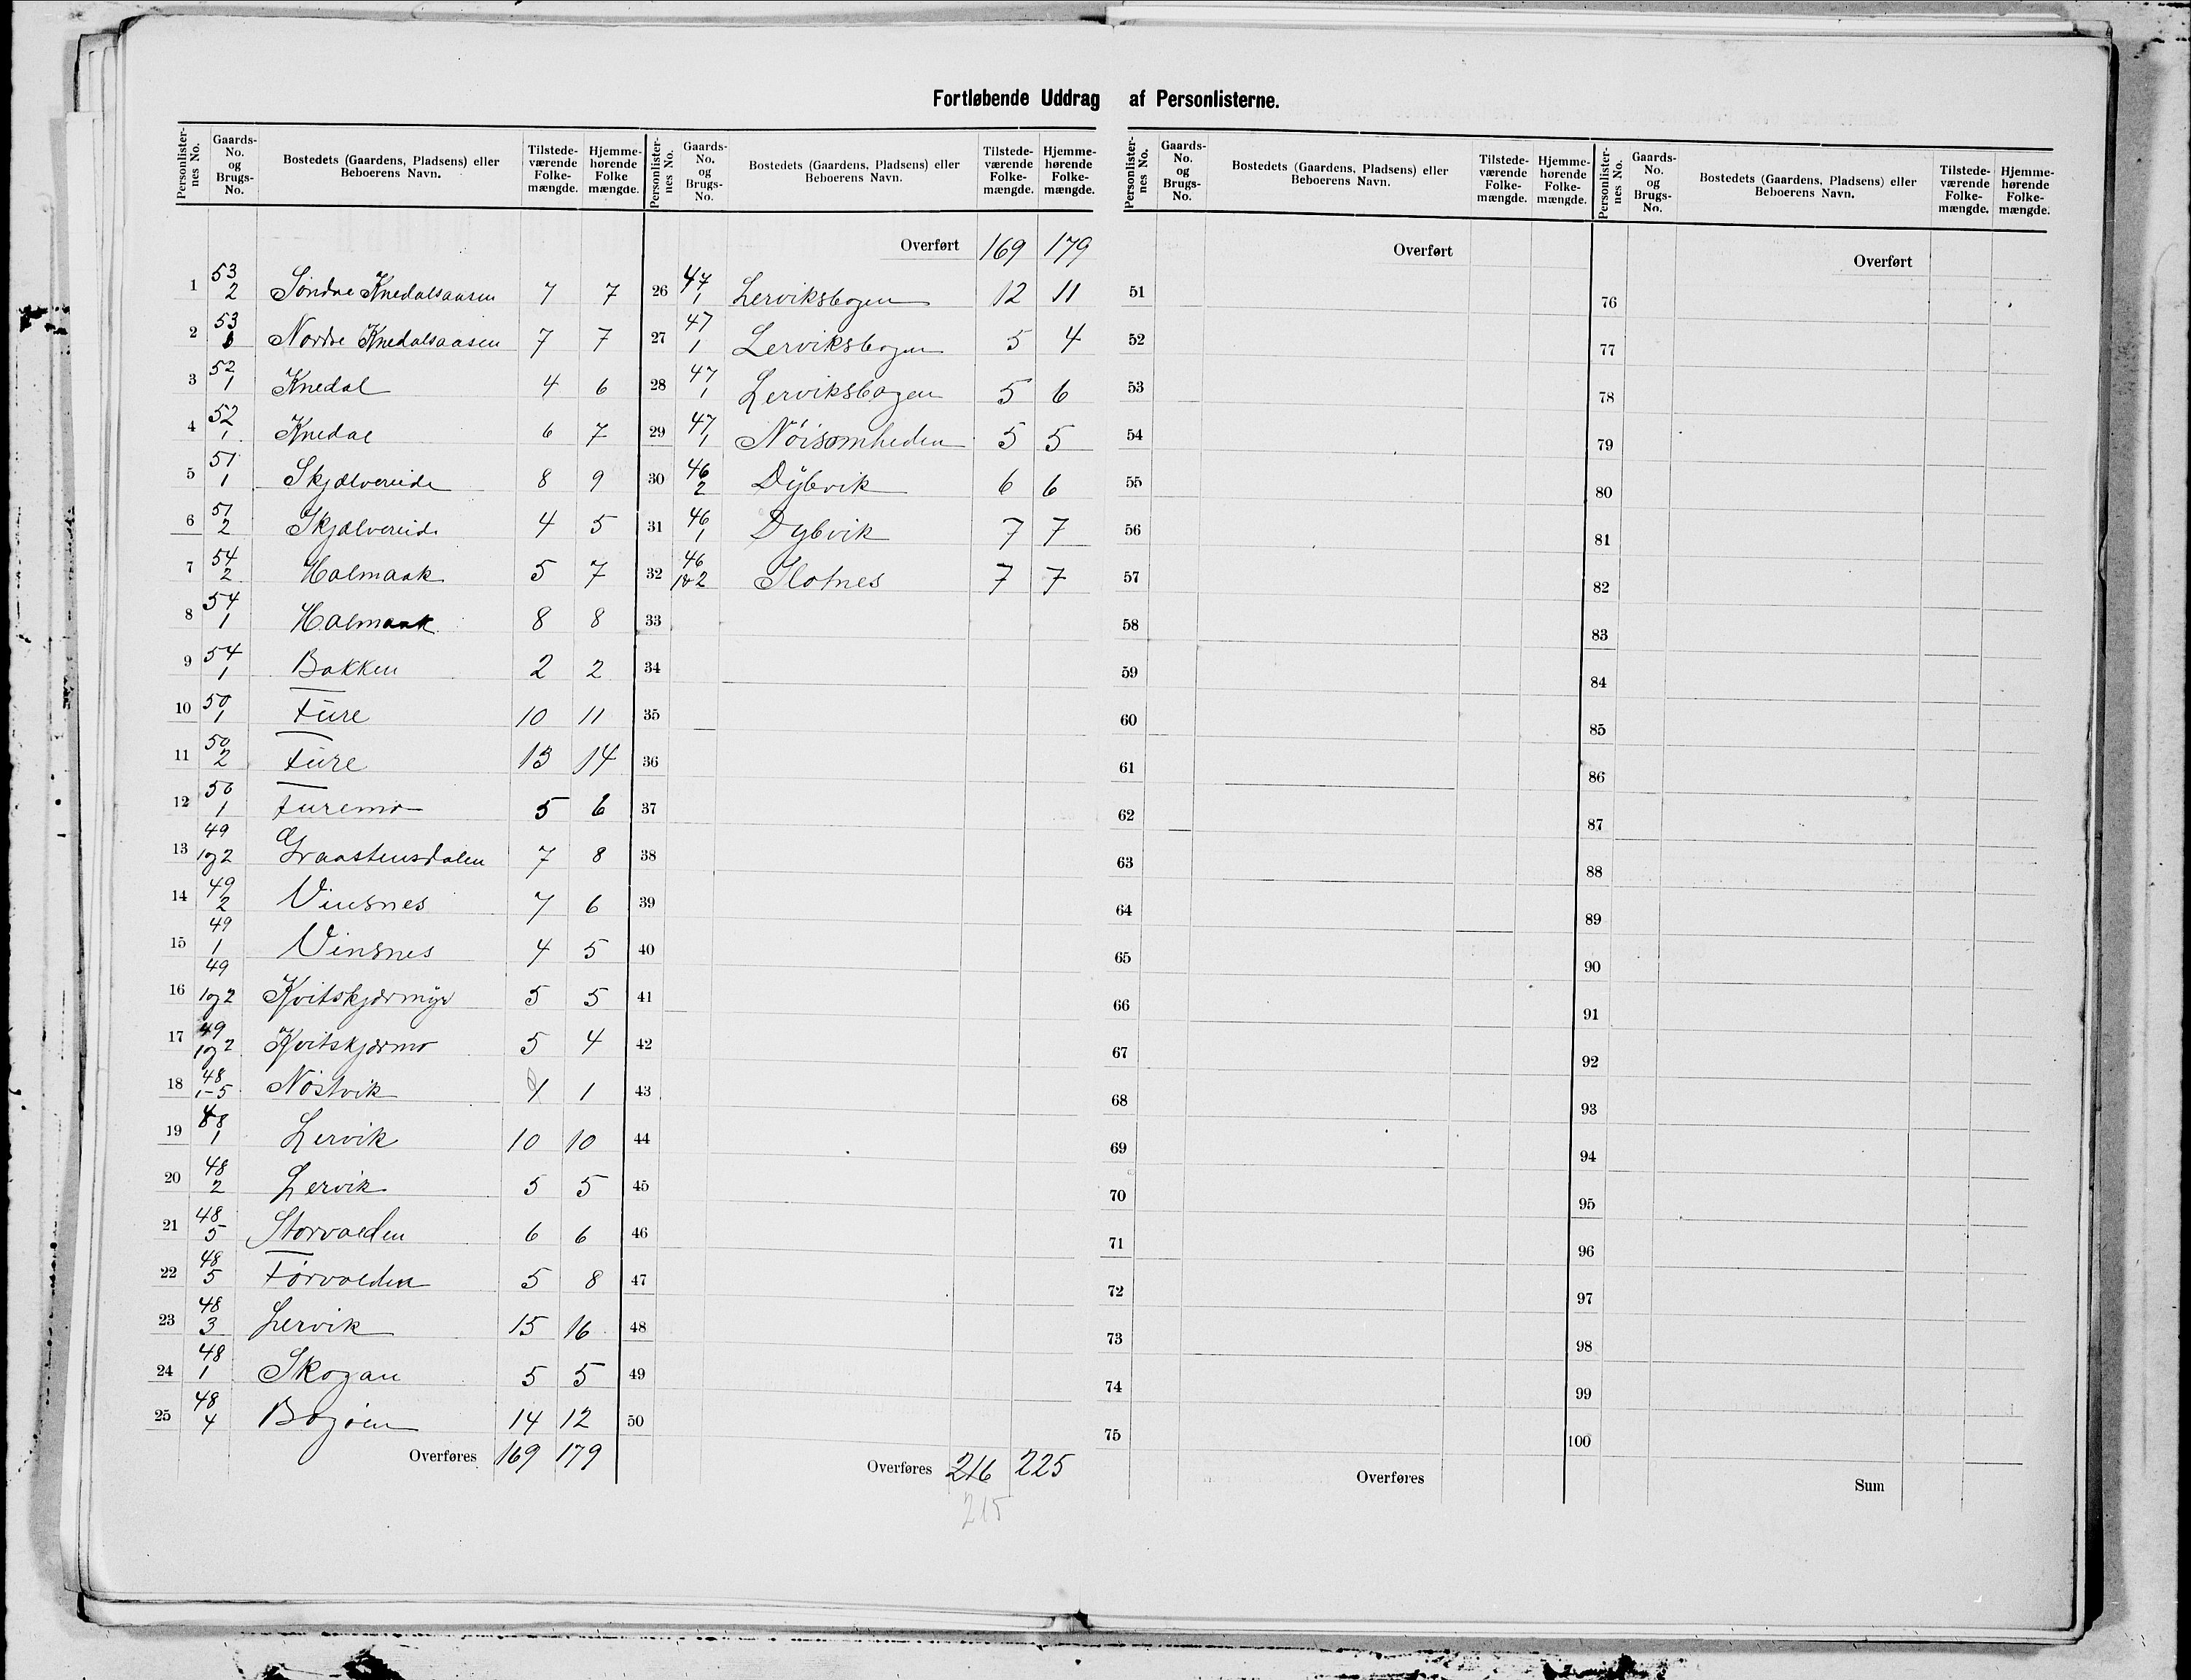 Fortløbende Uddrag af Personlisterne.
Personlister-nes No. Gaards-No. og Brugs-No. Bostedets (Gaardens, Pladsens) eller Beboerens Navn. Tilstede-værende Folke-mængde. Hjemme-hørende Folke mængde.
1 53 2 Søndre Knedalsaasen 7 7
2 53 1 Nordre Knedalsaasen 7 7
3 52 1 Knedal 4 6
4 52 1 Knedal 6 7
5 51 1 Skjælvereide 8 9
6 51 2 Skjælvereide 4 5
7 54 2 Halmaak 5 7
8 54 1 Halmaak 8 8
9 54 1 Bakken 2 2
10 50 1 Fure 10 11
11 50 2 Fure 13 14
12 50 1 Furemo 5 6
13 49 1og2 Graastensdalen 7 8
14 49 2 Vinsnes 7 6
15 49 1 Vinsnes 4 5
16 49 1og2 Kvitskjærmyr 5 5
17 49 1og2 Kvitskjærmo 5 4
18 48 1-5 Nöstvik 1 1
19 48 1 Lervik 10 10
20 48 2 Lervik 5 5
21 48 5 Storvolden 6 6
22 48 5 Förvolden 5 8
23 48 3 Lervik 15 16
24 48 1 Skogan 5 5
25 48 4 Bogöen 14 12
Overføres 169 179
Personlister-nes No. Gaards-No. og Brugs-No. Bostedets (Gaardens, Pladsens) eller Beboerens Navn. Tilstede-værende Folke-mængde. Hjemme-hørende Folke-mængde.
Overført 169 179
26 47 1 Lerviksbogen 12 11
27 47 1 Lerviksbogen 5 4
28 47 1 Lerviksbogen 5 6
29 47 1 Nöisomheden 5 5
30 46 2 Dybvik 6 6
31 46 1 Dybvik 7 7
32 46 1&2 Flotnes 7 7
33
34
35
36
37
38
39
40
41
42
43
44
45
46
47
48
49
50
Overføres 216 225
215
Personlister-nes No. Gaards-No. og Brugs-No. Bostedets (Gaardens, Pladsens) eller Beboerens Navn. Tilstede-værende Folke-mængde. Hjemme-hørende Folke-mængde.
Overført
51
52
53
54
55
56
57
58
59
60
61
62
63
64
65
66
67
68
69
70
71
72
73
74
75
Overføres
Personlister-nes No. Gaards-No. og Brugs-No. Bostedets (Gaardens, Pladsens) eller Beboerens Navn. Tilstede-værende Folke-mængde. Hjemme-hørende Folke-mængde.
Overført
76
77
78
79
80
81
82
83
84
85
86
87
88
89
90
91
92
93
94
95
96
97
98
99
100
Sum